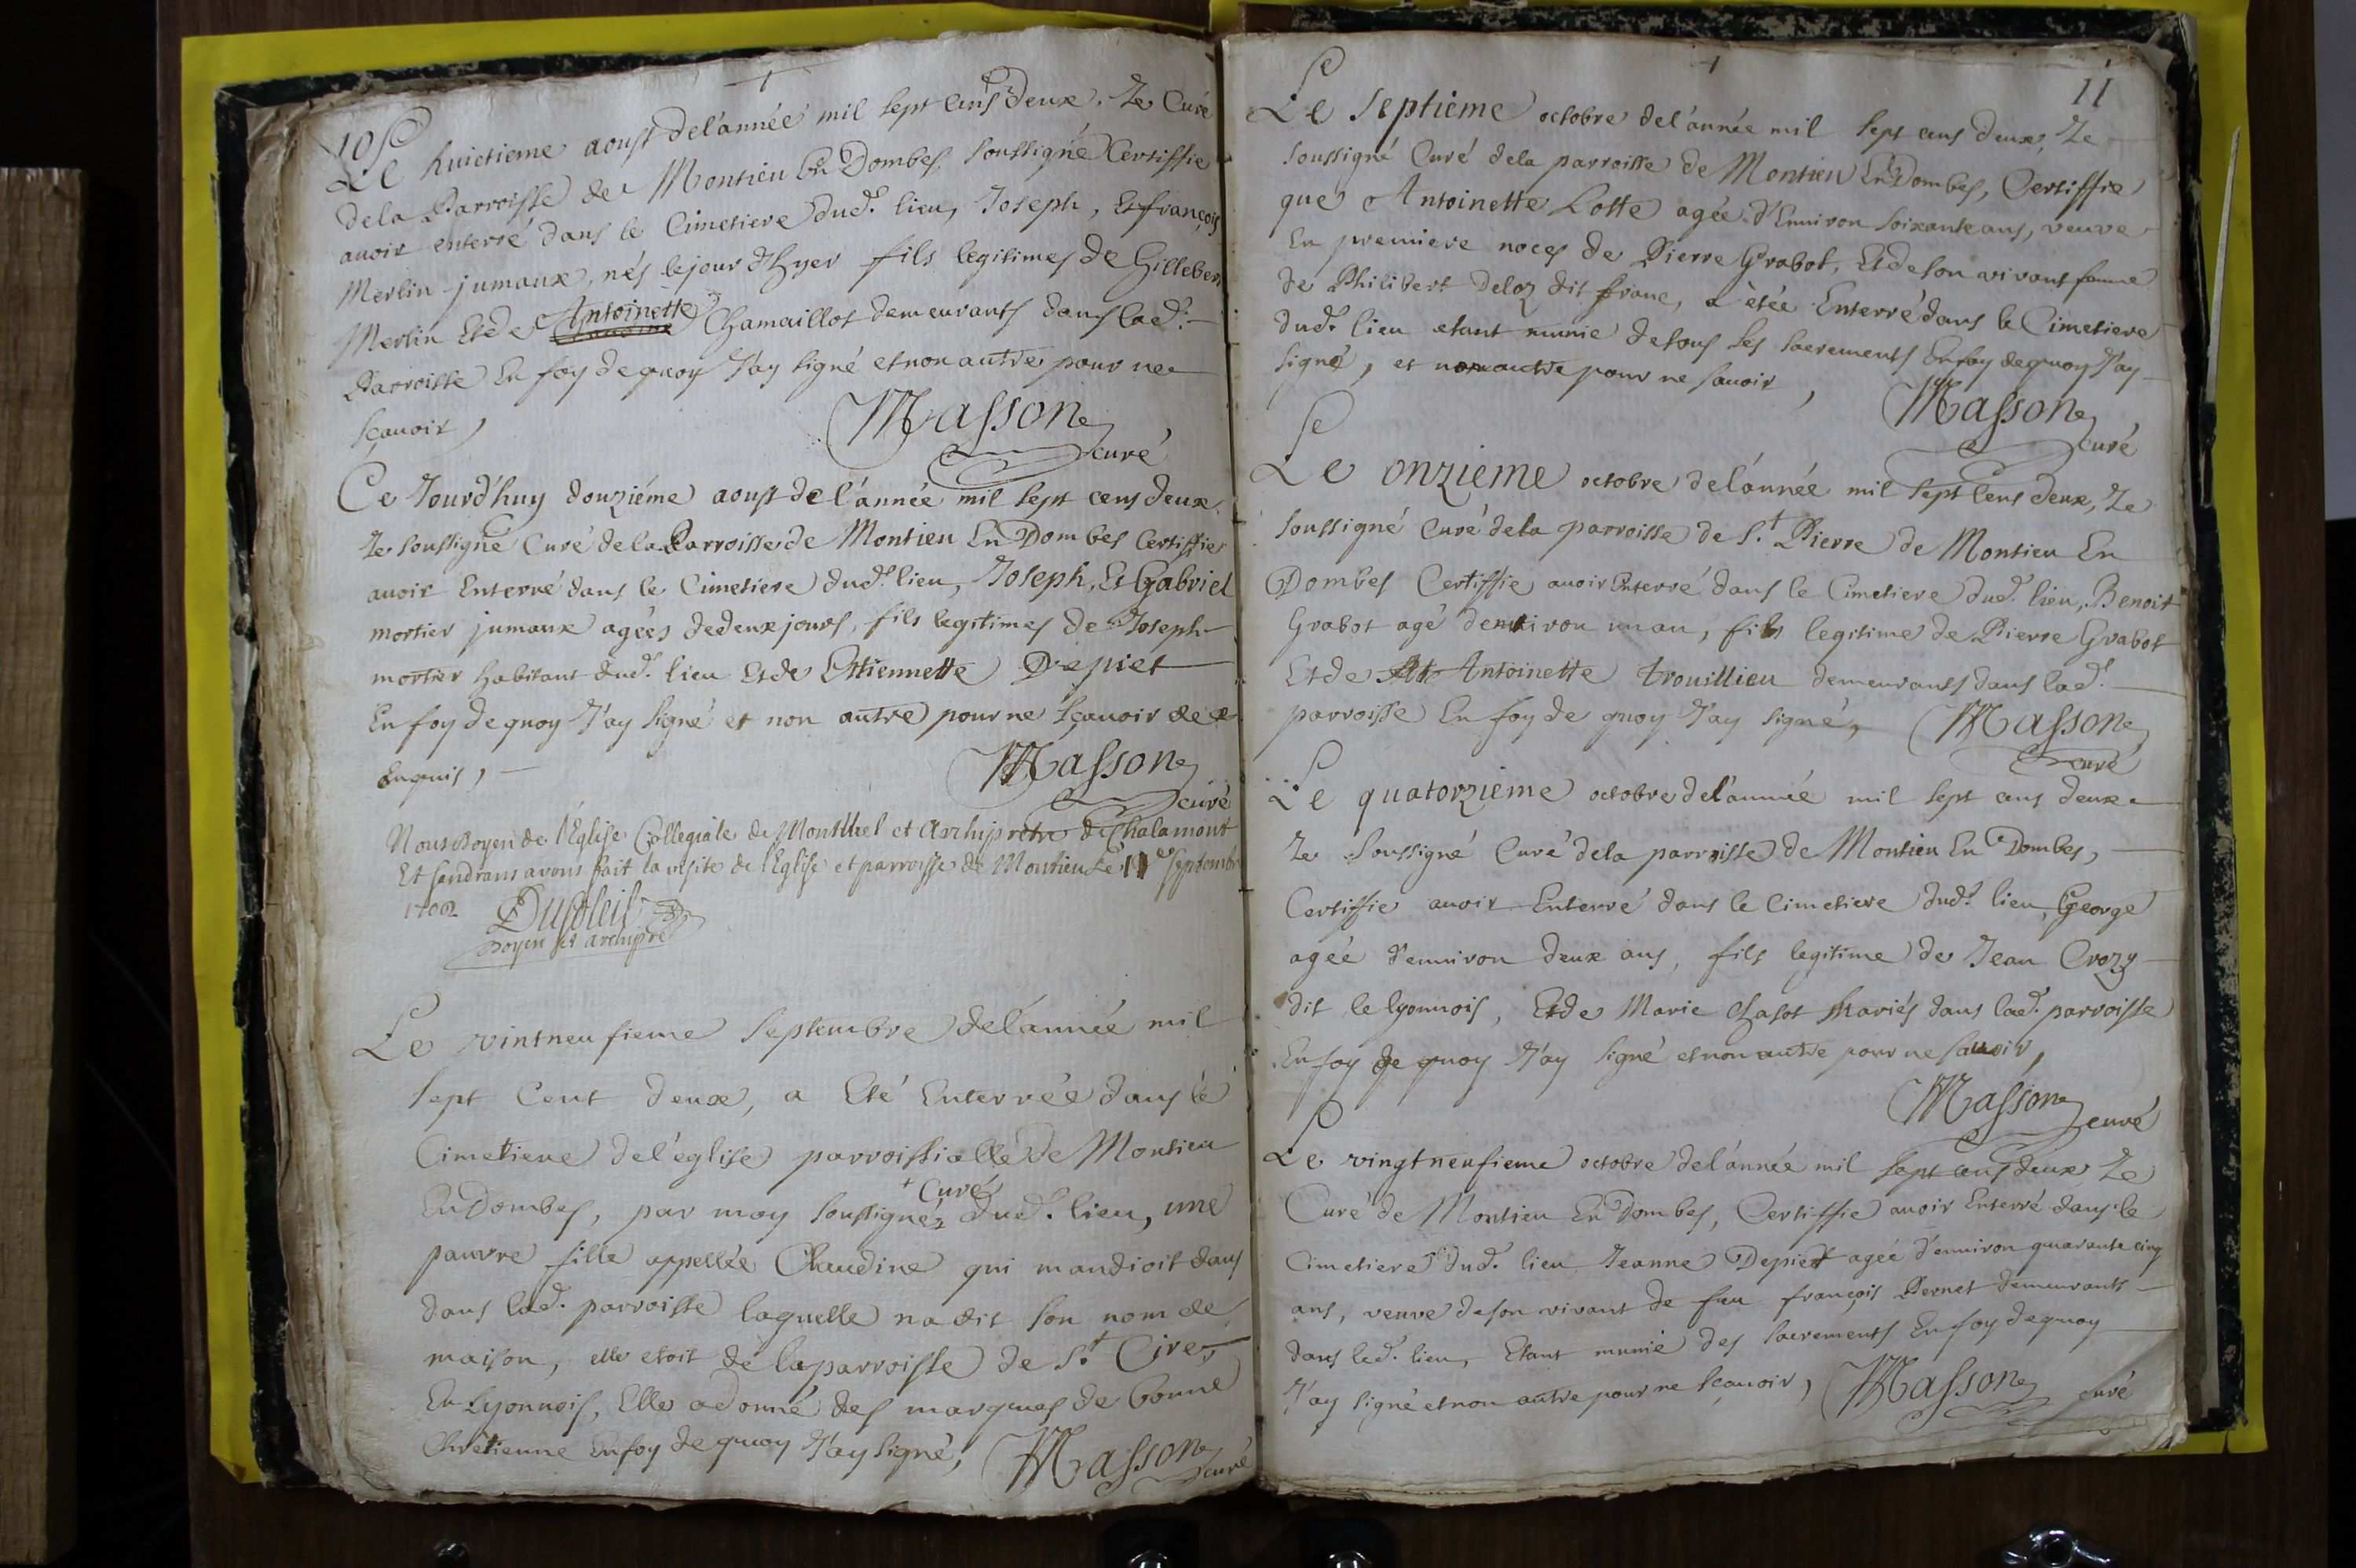 10
Le huictieme aoust de l'année mil sept cens deux. Je Curé
de la Parroisse de Montieu En Dombes soussigné Certiffie
auoir enterré dans le Cimetiere dud. lieu, Joseph, Et françois
Merlin jumaux, nés le jour d'hyer fils legitimes de Gillebert
Merlin Et de Antoinette Chamaillot demeurants dans lad.
Parroisse En foy de quoy J'ay signé et non autre pour ne
sçauoir,
Masson
curé
Ce Jourd'huy douziéme aoust de l'année mil sept cens deux.
Je soussigné Curé de la Parroisse de Montieu En Dombes Certiffie
auoir Enterré dans le Cimetiere dud. lieu, Joseph, Et Gabriel
mortier jumaux agées de deux jours, fils legitimes de Joseph
mortier habitant dud. lieu Et de Estiennette Depiet
En foy de quoy J'ay signé et non autre pour ne sçauoir de ce
Enquis,
Masson
curé
Nous Doyen de l'Eglise Collegiale de Montluel et Archiprêtre de Chalamont
Et Sandrans avons fait la visite de l'Eglise et parroisse de Montieu Le 11e Septembre
1702
Dusoleil
Doyen et archiprê
Le vintneufieme Septembre de l'année mil
sept Cent deux, a Eté Enterrée dans le
Cimetiere de l'église parroissialle de Montieu
En Dombes, par moy soussigné + Curé dud. lieu, une
pauvre fille appellée Claudine qui mandioit dans
dans lad. parroisse laquelle na dit son nom de
maison, elle etoit de la parroisse de St. Cire
En Lyonnois, Elle a donné des marques de bonne
Chrétienne En foy de quoy J'ay signé,
Masson
curé
11
Le Septieme octobre de l'année mil sept cens deux, Je
soussigné Curé de la parroisse de Montieu En Dombes, Certiffie
que Antoinette Lotte agée d'Enuiron soixante ans, veuve
En premiere noces de Pierre Grabot, Et de son vivant femme
de Philibert Deloz dit franc, a étée Enterré dans le Cimetiere
dud. lieu etant munie de tous les sacrements En foy de quoy J'ay
signé, et non autre pour ne sauoir,
Masson
curé
Le onzieme octobre de l'année mil sept cens deux, Je
soussigné Curé de la parroisse de St. Pierre de Montieu En
Dombes Certiffie auoir Enterré dans le Cimetiere dud. lieu, Benoit
Grabot agé denviron un an, fils legitime de Pierre Grabot
Et de Antoinette trouillieu demeurants dans lad.
parroisse En foy de quoy J'ay signé,
Masson
curé
Le quatorzieme octobre de l'année mil sept cens deux
Je Soussigné Curé de la parroisse de Montieu En Dombes,
Certiffie auoir Enterré dans le Cimetiere dud. lieu, George
agée d'enuiron deux ans, fils legitime de Jean Crozy
dit le lyonnois, Et de Marie Chasot Mariés dans lad. parroisse
En foy de quoy J'ay signé et non autre pour ne sauoir,
Masson
curé
Le vingtneufieme octobre de l'année mil sept cens deux Je
Curé de Montieu En Dombes, Certiffie auoir Enterré dans le
Cimetiere dud. lieu Jeanne Depiet agée d'enuiron quarante cinq
ans, veuve de son vivant de feu françois Pernet demeurants
dans led. lieu, Etant munie des sacrements En foy de quoy
J'ay signé et non autre pour ne sçauoir,
Masson
curé